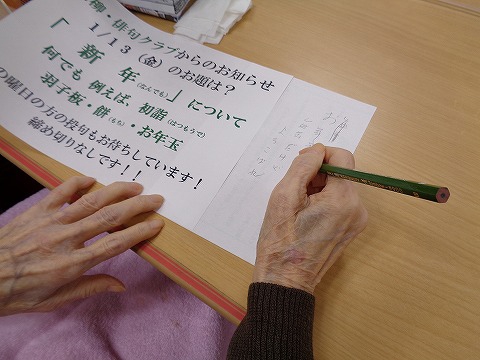 柳・俳句クラブからのお知らせ
1/13(金)のお題は?
「新年」について
(なんでも)
何でも 例えば、初詣(はつもうで)
羽子板・餅(もち)・お年玉
の曜日の方の投句もお待ちしています!
締め切りなしです!!